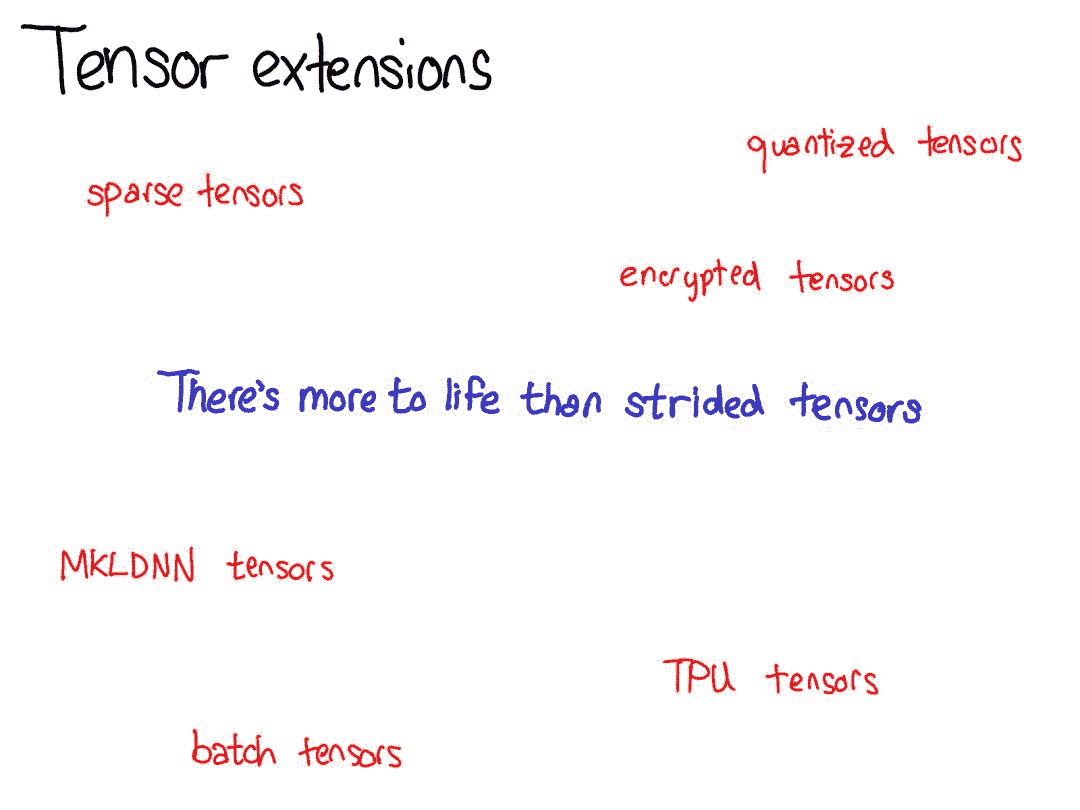 Tensor extensions
quantized tensors
sparse tensors
encrypted tensors
There's more to life than strided tensors
MKLDNN tensors
TPU tensors
batch tensors